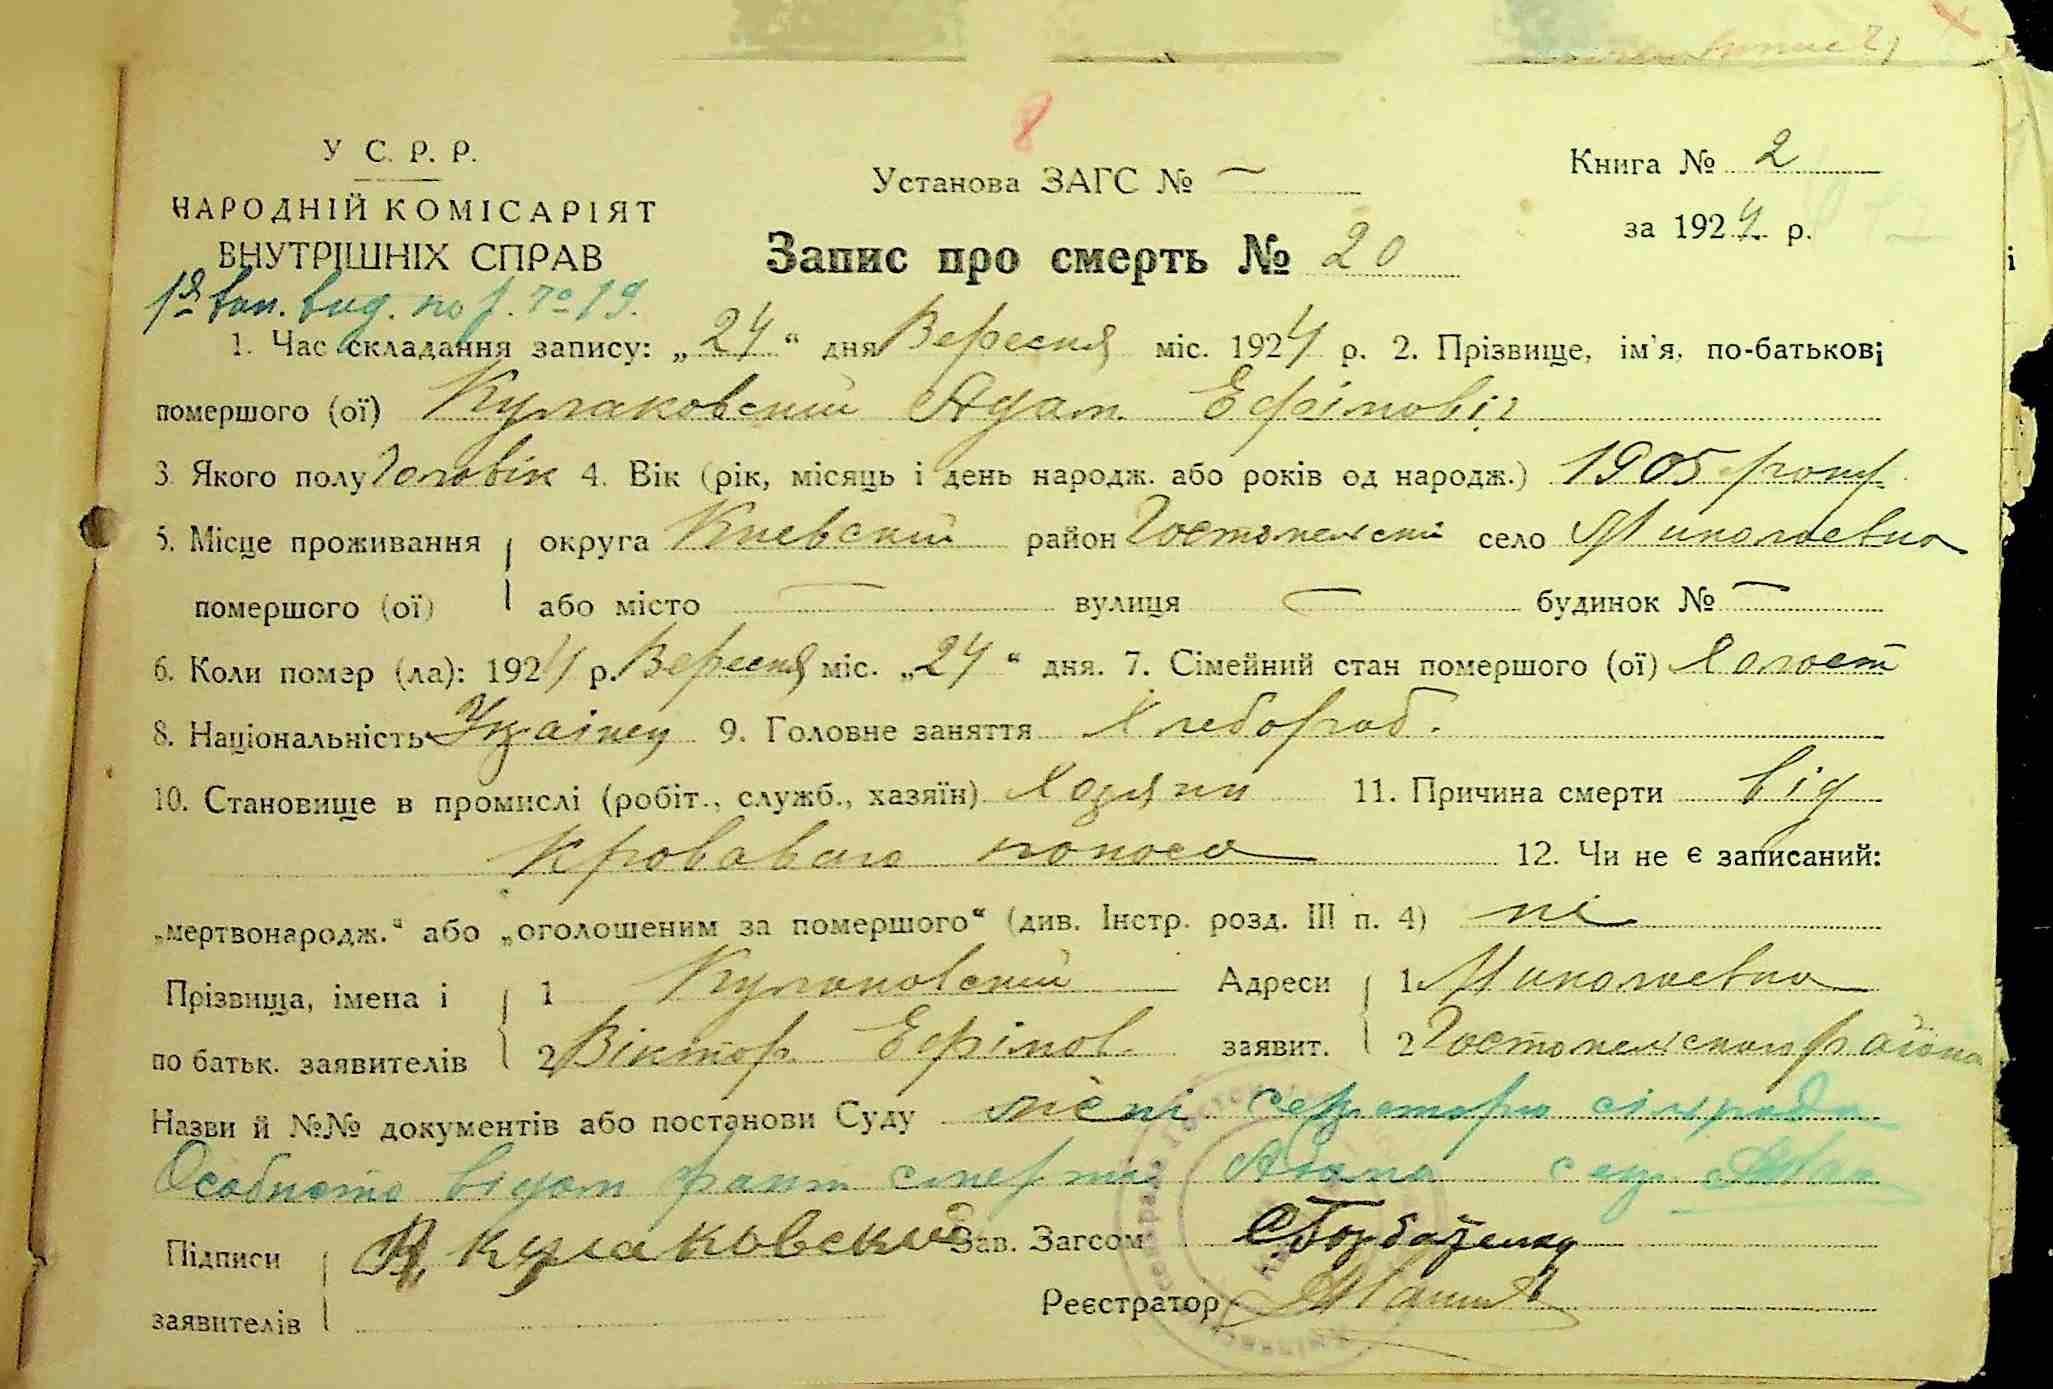 У С. Р. Р.
НАРОДНІЙ КОМІСАРІЯТ
ВНУТРІШНІХ СПРАВ
8
Установа ЗАГС № —
Книга № 2
за 1924 р.
Запис про смерть № 20
1. Час складання запису: „24“ дня Вересня міс. 1924 р. 2. Прізвище, ім'я, по-батькові
помершого (ої) Кулаковский Адам Ефімовіч
3. Якого полу Чоловік 4. Вік (рік, місяць і день народж. або років од народж.) 1905 року
5. Місце проживання округа Киевский район Гостомельский село Миколаевка
помершого (ої) або місто — вулиця — будинок № —
6. Коли помер (ла): 1924 р. Вересня міс. „24“ дня. 7. Сімейний стан помершого (ої) Холост
8. Національність Украінец 9. Головне заняття Хлебороб.
10. Становище в промислі (робіт., служб., хазяїн) Хозяин 11. Причина смерти від
кроваваго поноса 12. Чи не є записаний:
„мертвонародж.“ або „оголошеним за помершого“ (див. Інстр. розд. III п. 4) ні
Прізвища, імена і 1 Кулаковский Адреси 1 Миколаевка
по батьк. заявителів 2 Віктор Ефімов заявит. 2 Гостомельского района
Назви й №№ документів або постанови Суду мені секретарю сільради
Особисто відом факт смерти Адама сек.
Підписи В Кулаковский Зав. Загсом Горбаченко
заявителів Реєстратор